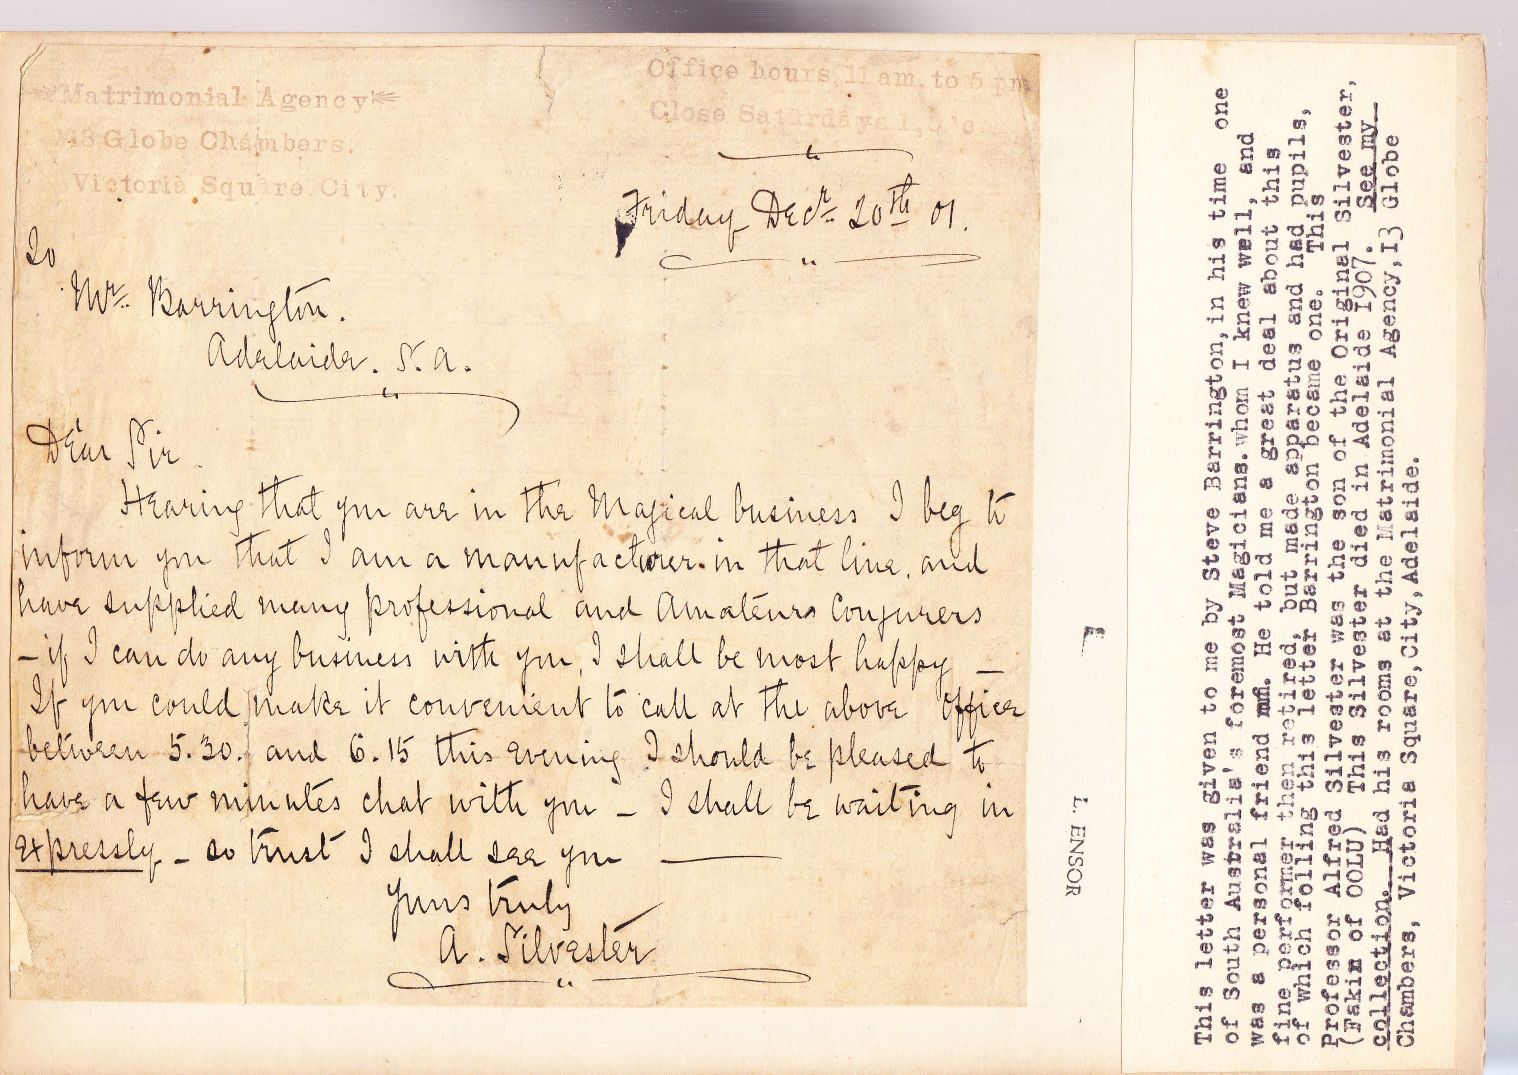 Matrimonial Agency
13 Globe Chambers.
Victoria Square. City.
Office hours, 11 am. to 5 pm
Close Saturdays 1,
Friday Decr. 20th 01.
To
Mr. Barrington.
Adelaide. S. A.
Dear Sir
Hearing that you are in the Magical business I beg to
inform you that I am a manufacturer in that line, and
have supplied many professional and Amateurs Conjurers
– if I can do any business with you, I shall be most happy –
If you could make it convenient to call at the above Office
between 5.30. and 6.15 this evening I should be pleased to
have a few minutes chat with you – I shall be waiting in
expressly – so trust I shall see you ——
Yours truly
A. Silvester
L. ENSOR
This letter was given to me by Steve Barrington, in his time one
of South Australia's foremost Magicians. whom I knew well, and
was a personal friend. He told me a great deal about this
fine performer then retired, but made apparatus and had pupils,
of which folling this letter Barrington became one. This
Professor Alfred Silvester was the son of the Original Silvester,
(Fakim of OOLU) This Silvester died in Adelaide 1907. See my
collection. Had his rooms at the Matrimonial Agency, 13 Globe
Chambers, Victoria Square, City, Adelaide.